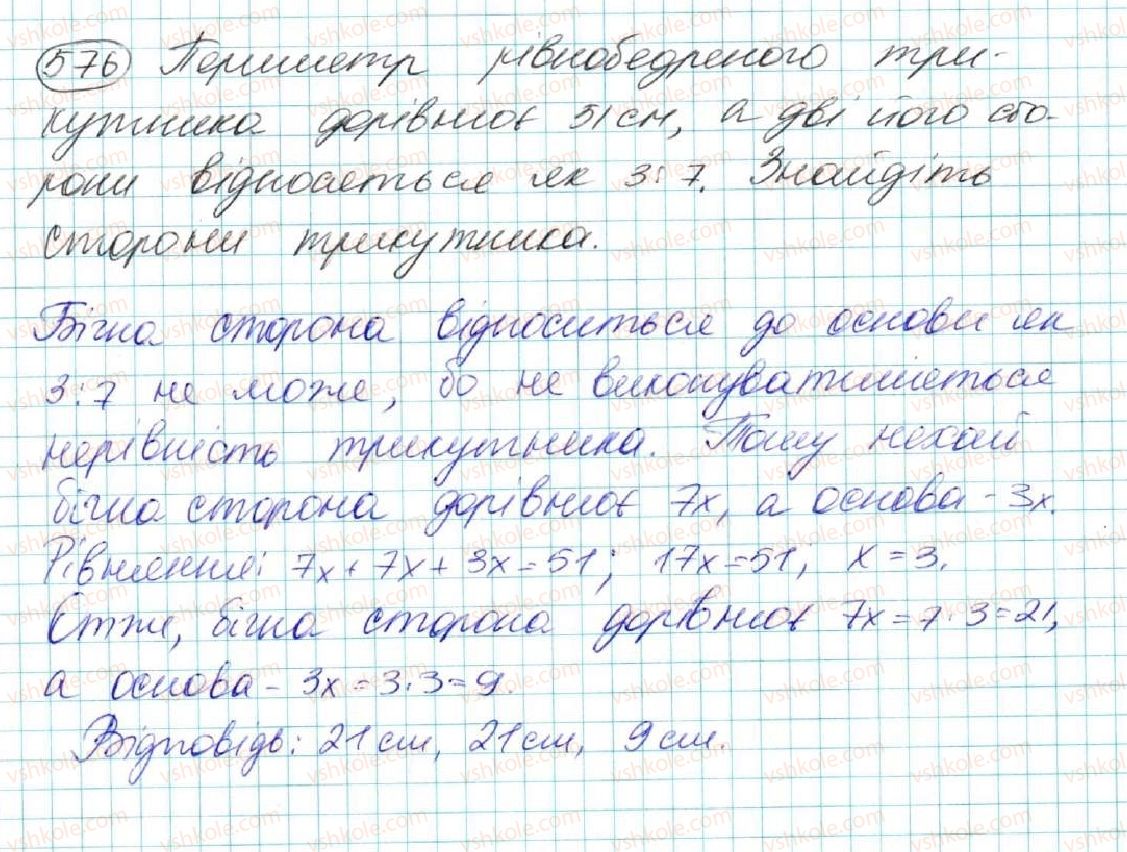 576 Периметр рівнобедреного три-
кутника дорівнює 51 см, а дві його сто-
рони відносяться як 3:7. Знайдіть
сторони трикутника.
Бічна сторона відноситься до основи як
3:7 не може, бо не виконуватиметься
нерівність трикутника. Тому нехай
бічна сторона дорівнює 7x, а основа - 3x.
Рівняння: 7x + 7x + 3x = 51; 17x = 51; x = 3.
Отже, бічна сторона дорівнює 7x = 7·3 = 21,
а основа - 3x = 3·3 = 9.
Відповідь: 21 см, 21 см, 9 см.